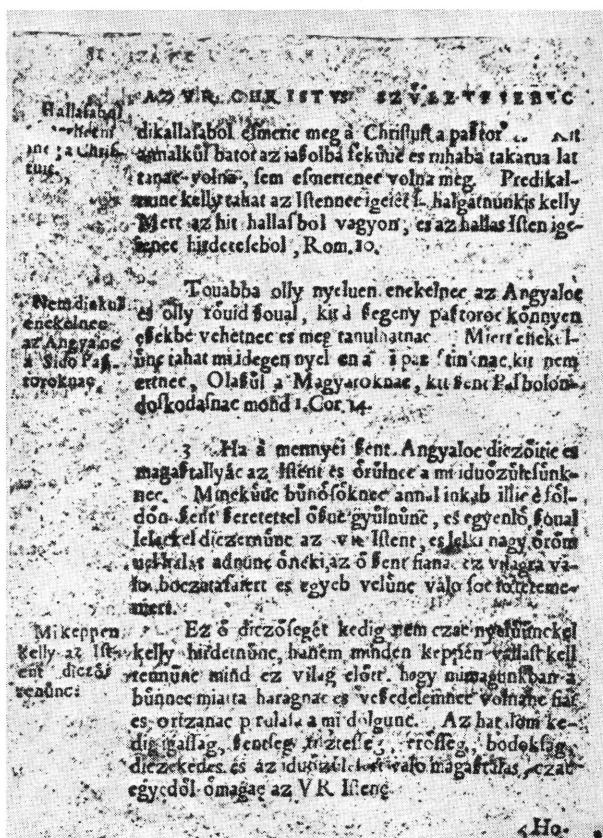 AZ VR CHRISTVS SZVLETESEBVC
Hallasabol
dikallasabol esmerie meg à Christust a pastor
annalkűl bator az iasolba fekűue es ruhaba takarua lat
tanac volna, sem esmertenec volna meg. Predikal-
nunc kelly tahat az Istennec igeiet halgatnunkis kelly
Mert az hit hallasbol vagyon, es az hallas Isten ige-
ienec hirdetesebol, Rom. 10.
Nem diakul
enekelnec
az Angyaloc
a Sido Pas-
toroknac,
Touabba olly nyeluen enekelnec az Angyaloc
es olly rőuid soual, kit à segeny pastoroc kőnnyen
esekbe vehetnec es meg tanulhatnac. Miert enekel-
űnc tahat mi idegen nyel en a kit nem
ertnec, Olasűl a Magyaroknac, kit sent Pal bolon-
doskodasnac mond 1. Cor. 14.
3 Ha à mennyei sent Angyaloc diczőitic es
magastallyác az Istent es őrűlnec a mi iduőzűlesűnk-
nec. Minekűnc bűnősőknec annal inkab illic è fől-
dőn sent seretettel ősue gyűlnűnc, es egyenlő soual
lelekel diczernűnc az vr Istent, es lelki nagy őrőm
uel halat adnunc őneki az ő sent fiana ez vilagra va-
lo boczatasaert es egyeb velűnc valo soc
mert.
Mikeppen
kelly az Ist-
ent diczőí
tenűnc:
Ez ő diczősegét kedig nem czac nyeluűnckel
kelly hirdetnűnc, hanem minden keppen vallast kell
tennűnc mind ez vilag előtt, hogy mimagunkban a
bűnnec miatta haragnac es vesedelemnec volnanc fiai
es ortzanac p rulasa a mi dolgunc. Az hatalom ke-
dig igassag, sentseg, tiztesse, errősseg, bodoksag,
diczekedes es az iduőzűlesre való magastalas, czac
egyedől őmagaé az V R. Istené
Ho.